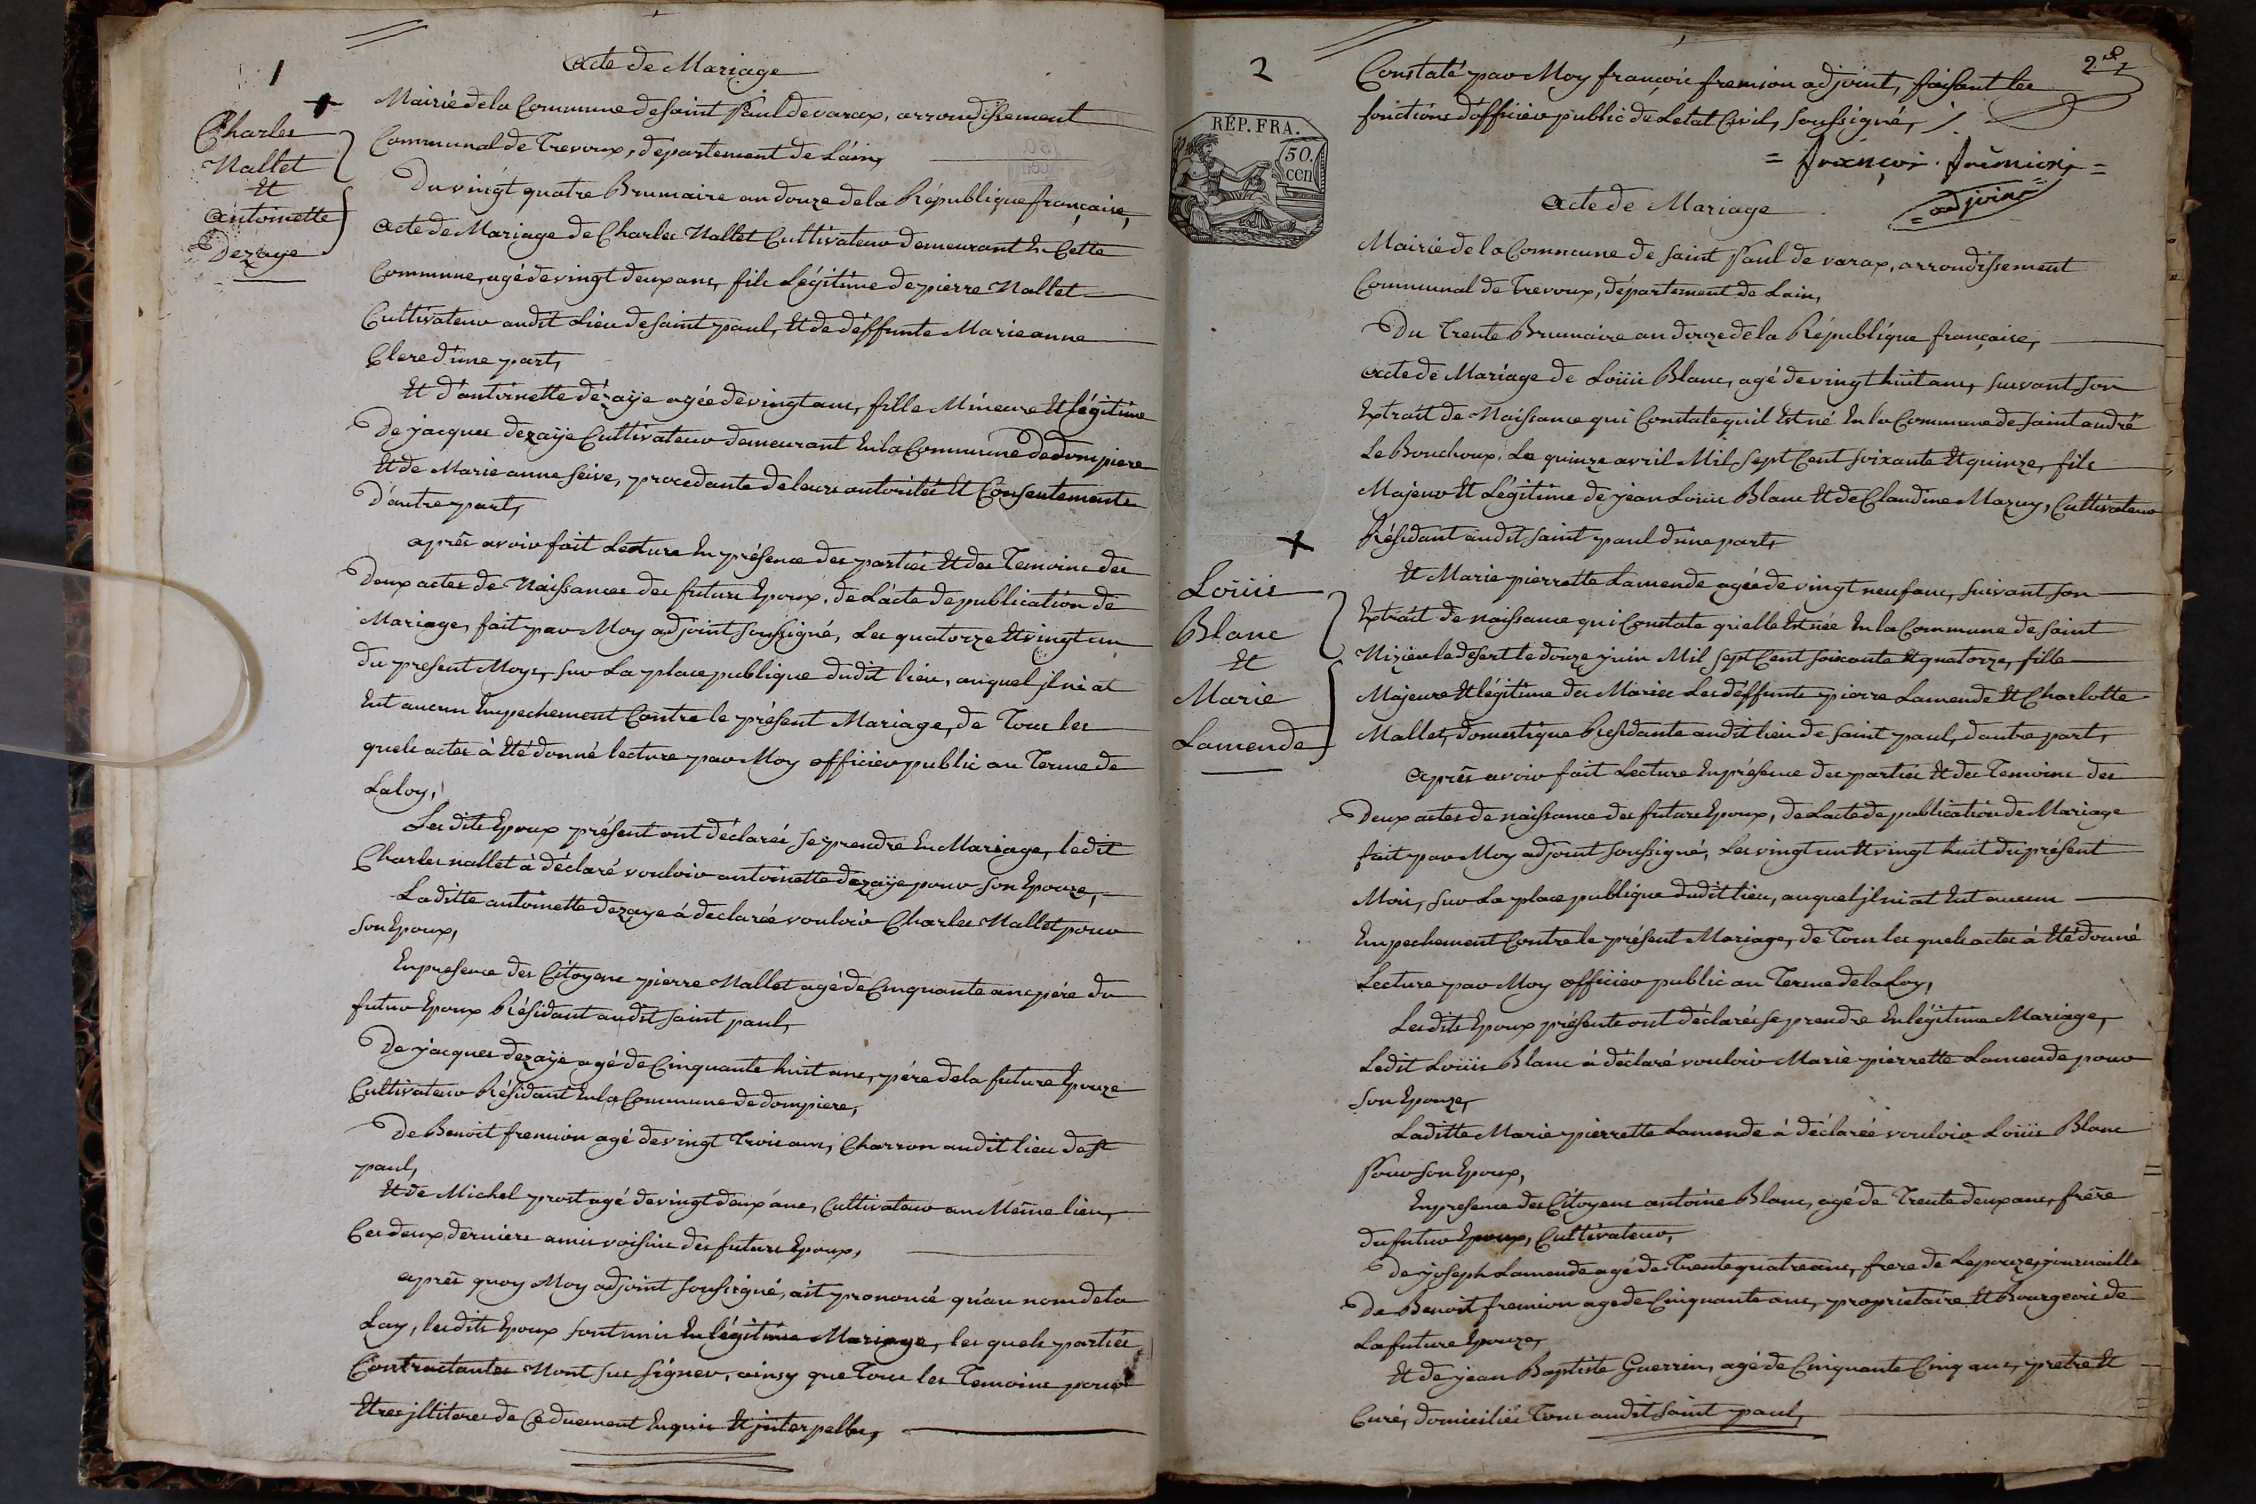 1
acte de Mariage
Charles
Nallet
Et
antoinette
Dezaye
Mairie de la Commune de Saint Paul de varax, arrondissement
Communal de Trevoux, departement de Lain,
Du vingt quatre Brumaire an douze de la République française,
acte de Mariage de Charles Nallet Cultivateur demeurant En Cette
Commune, agé de vingt deux ans, fils Légitime de pierre Nallet
Cultivateur audit Lieu de saint paul, Et de déffunte Marie anne
Clere d'une part,
Et d'antoinette dézaÿe agée de vingt ans, fille Mineure Et légitime
De jacques dezaÿe Cultivateur demeurant En la Commune de dompiere
Et de Marie anne seive, procedante de leurs autorités Et Consentements
D'autre part,
après avoir fait Lecture En présence des parties Et des Temoins des
Deux actes de Naissances des futurs Epoux, de L'acte de publication de
Mariage, fait par Moy adjoint soussigné, Les quatorze Et vingt un
du present Moys, sur La place publique dudit lieu, auquel jl ni at
Eut aucun Empechement Contre le présent Mariage, de Tous les
quels actes à Eté donné lecture par Moy officier public au Terme de
La loy,
Les dits Epoux présent ont déclarés se prendre En Mariage, ledit
Charles nallet à déclaré vouloir antoinette dezaÿe pour son Epouze,
Laditte antoinette dezaye á declarée vouloir Charles Nallet pour
son Epoux,
En presence des Citoyens pierre Nallet agé de Cinquante ans pére du
futur Epoux Résidant audit saint paul,
De jacques dezaÿe agé de Cinquante huit ans, pére de la future Epouze
Cultivateur Résidant En la Commune de dompiere,
De Benoit fremion agé de vingt Trois ans, Charron audit lieu de st
paul,
Et de Michel prost agé de vingt deux ans, Cultivateur au Même lieu,
Ces deux derniers amis voisins des futurs Epoux,
après quoy Moy adjoint soussigné, ait prononcé qu'au nom de la
Loy, les dits Epoux sont unis En légitime Mariage, les quels parties
Contractantes Mont sus signer, ainsy que Tous les Temoins pour
Etres jlliteres de Ce duement Enquis Et jnterpellés,
2
2e
Constaté par Moy françois fremion adjoint, faisant les
fonctions d'officier public de Letat Civil, soussigné,
= françois fremion =
= adjoint =
RÉP. FRA.
50.
cen
acte de Mariage
Mairie de la Commune de saint Paul de varax, arrondissement
Communal de Trevoux, département de Lain,
Du Trente Brumaire an douze de la République française,
acte de Mariage de Loüis Blanc, agé de vingt huit ans, suivant son
Extrait de Naissance qui Constate quil Est né En la Commune de saint andré
Le Bouchoux, Le quinze avril Mil sept Cent soixante Et quinze, fils
Majeur Et Légitime de jean Loüis Blanc Et de Claudine Mazuy, Cultivateur
Résidant audit saint paul d'une part,
Loüis
Blanc
Et
Marie
Lamende
Et Marie pierrette Lamende agée de vingt neuf ans, suivant son
Extrait de naissance qui Constate qu'elle Est née En la Commune de saint
Nizier le desert le douze juin Mil sept Cent soixante Et quatorze, fille
Majeure Et légitime des Mariés Les déffunts pierre Lamende Et Charlotte
Mallet, domestique Residante audit lieu de saint paul, d'autre part,
après avoir fait Lecture En présence des parties Et des Temoins des
Deux actes de naissance des futurs Epoux, de Lacte de publication de Mariage
fait par Moy adjoint soussigné, Les vingt un Et vingt huit du présent
Mois, sur La place publique dudit lieu, auquel jl ni at Eut aucun
Empechement Contre le présent Mariage, de Tous les quels actes à Eté donné
Lecture par Moy officier public au Terme de la Loy,
Les dits Epoux présents ont déclarés se prendre En légitime Mariage,
Ledit Loüis Blanc à déclaré vouloir Marie pierrette Lamende pour
son Epouze,
Laditte Marie pierrette Lamende á déclarée vouloir Loüis Blanc
Pour son Epoux,
En presence des Citoyens antoine Blanc, agé de Trente deux ans, frère
du futur Epoux, Cultivateur,
De joseph Lamende agé de Trente quatre ans, frere de Lepouze, journaille
De Benoit fremion agé de Cinquante ans, proprietaire Et Bourgeois de
La future Epouze,
Et de jean Baptiste Guerrin, agé de Cinquante Cinq ans, pretre Et
Curé, domiciliés Tous audit saint paul,